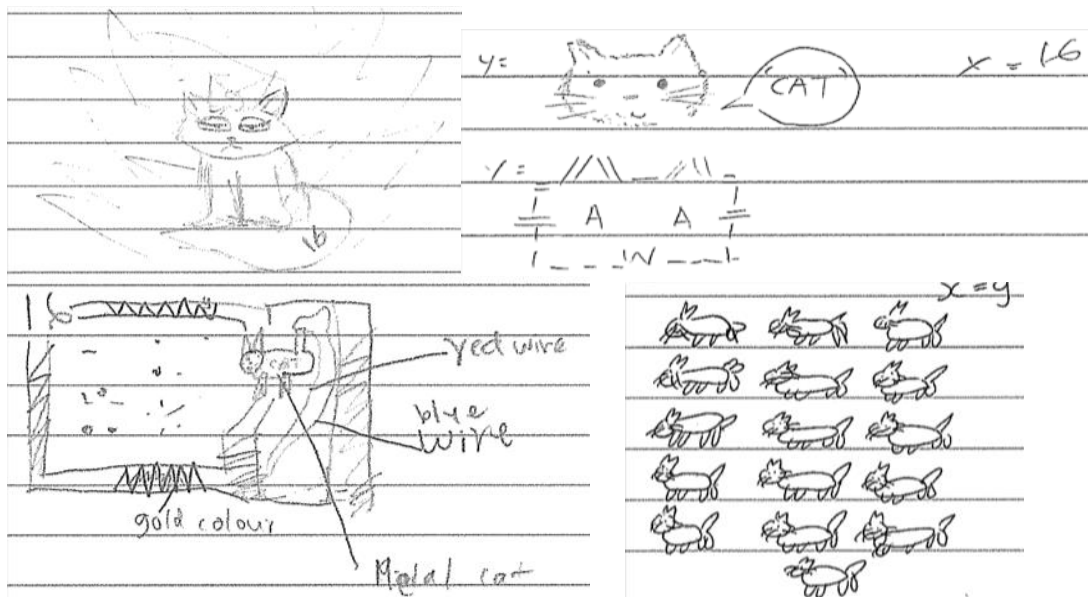 16
y=
"CAT"
x = 16
y =
A A
W
16
CAT
red wire
blue
wire
gold colour
Metal cat
x=y